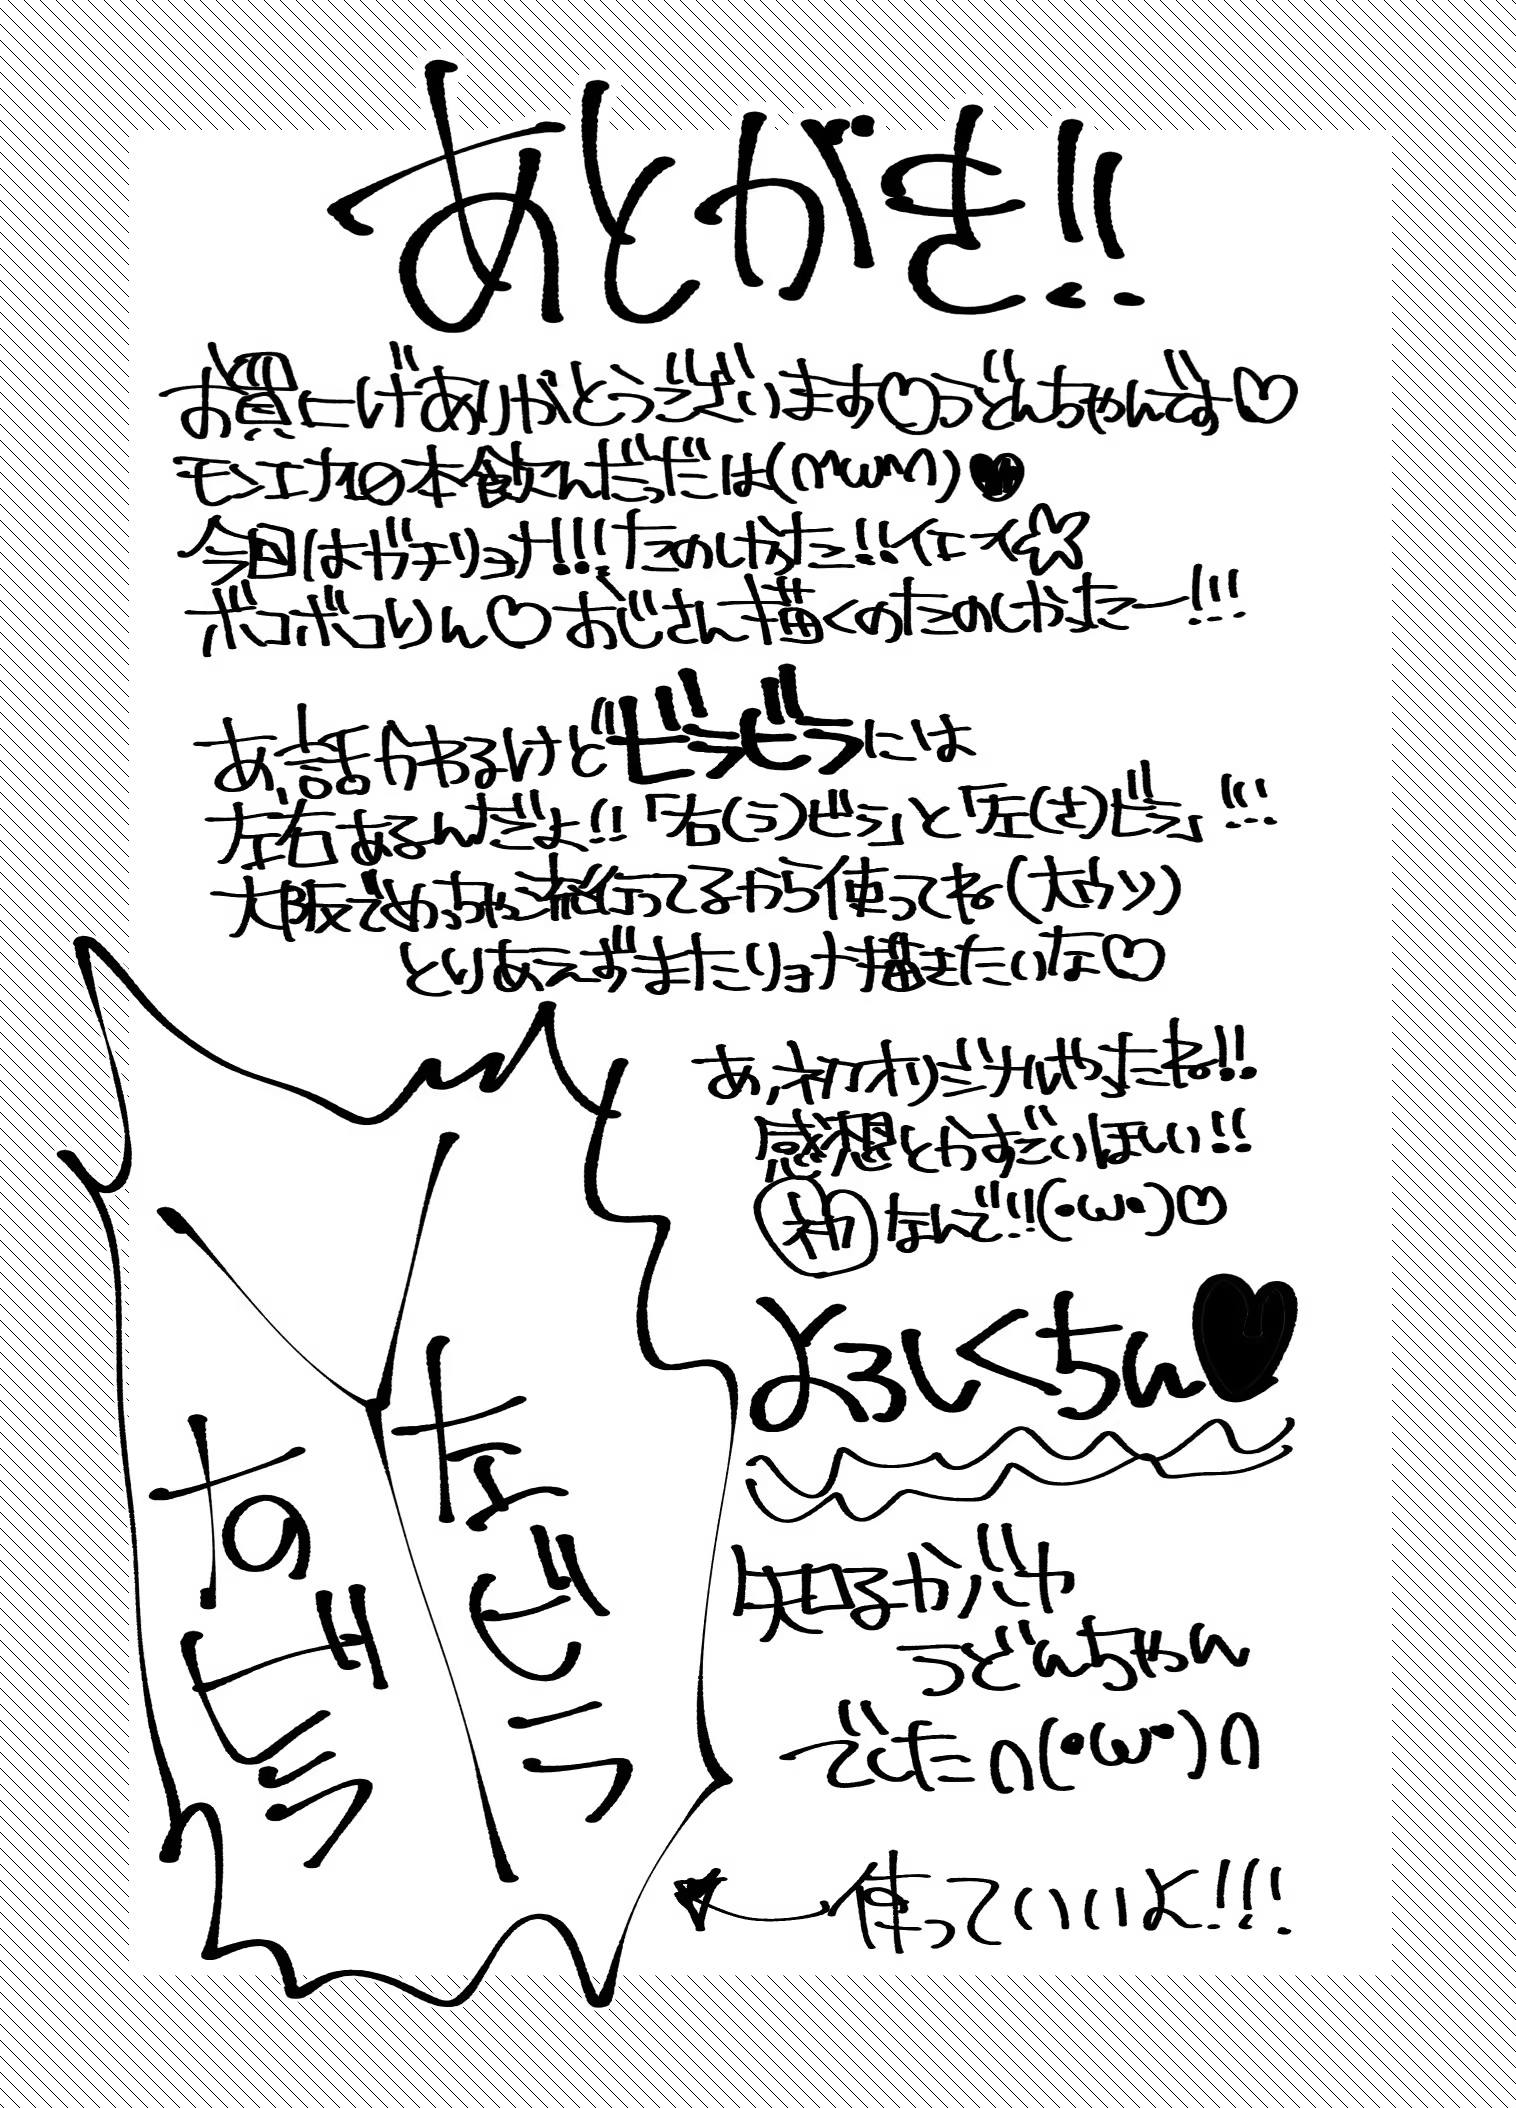 あとがき!!
お買上げありがとうございます♡うどんちゃんです♡
モンエナ10本飲んだっだは(∩ω∩)♥
今回はガチリョナ!!!たのしかった!!イェーイ☆
ボコボコりん♡おじさん描くのたのしかったー!!!
あ、話かわるけどビラビラには
左右あるんだよ!!「右(う)ビラ」と「左(さ)ビラ」!!!
大阪でめっちゃ流行ってるから使ってね(大ウソ)
とりあえずまたリョナ描きたいな♡
あ、ネカオリジナルやったね!!
感想とかすごいほしい!!
初なんで!!(・ω・)♡
よろしくちん♥
知るかバカ
うどんちゃん
でした∩(・ω・)∩
使っていいよ!!!
なビラ
すビラ